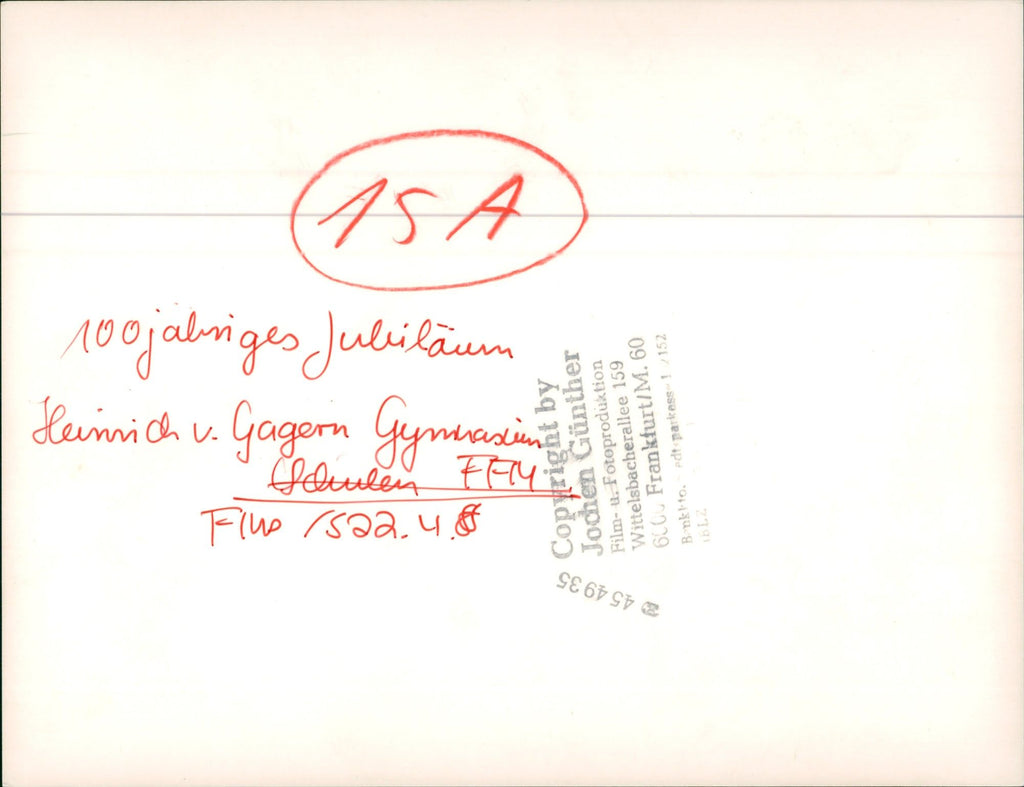 15 A
100jähriges Jubiläum
Heinrich v. Gagern Gymnasium
Schulen FFM
Film 1522.4.
Copyright by
Jochen Günther
Film- u. Fotoproduktion
Wittelsbacherallee 159
Frankfurt/M. 60
454935